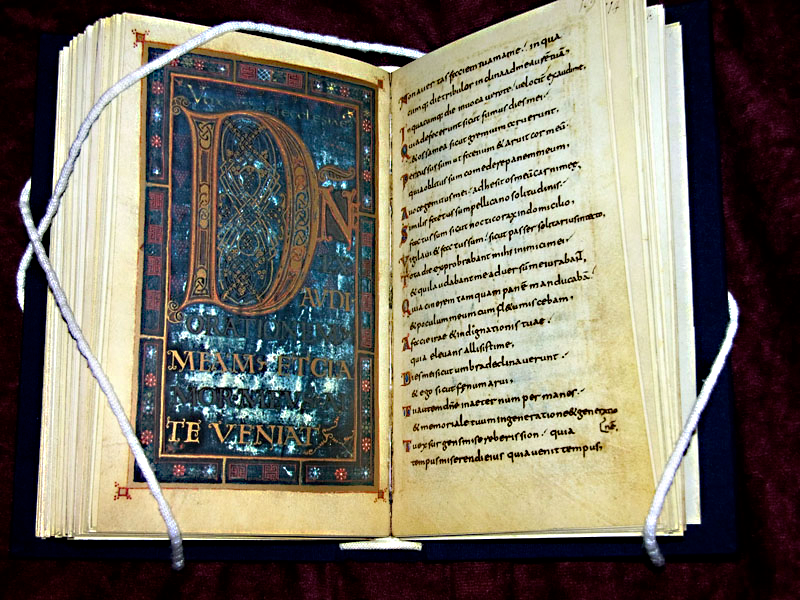 DN
AVDI
ORATIONEM
MEAM ET CLA
MOR MEVS A
TE VENIAT
Non avertas faciem tuam a me. in qua
cumq; die tribulor inclina ad me aurem tuam,
In quacumq; die invocavero te. velociter exaudi me,
Quia defecerunt sicut fumus dies mei.
& ossa mea sicut gremium aruerunt,
Percussus sum ut faenum & aruit cor meum
quia oblitus sum comedere panem meum,
A voce gemitus mei. adhesit os meum carni meę,
Similis factus sum pellicano solitudinis.
factus sum sicut nocticorax in domicilio,
Vigilavi & factus sum. sicut passer solitarius in tecto,
Tota die exprobrabant mihi inimici mei.
& qui laudabant me adversum me iurabant,
Quia cinerem tamquam panem manducabam.
& poculum meum cum fletu miscebam,
A facie irae & indignationis tuae.
quia elevans allisisti me,
Dies mei sicut umbra declinaverunt.
& ego sicut fenum arui,
Tu autem dne in aeternum permanes.
& memoriale tuum in generatione & generatio
nē,
Tu exsurgens misereberis sion. quia
tempus miserendi eius quia venit tempus,